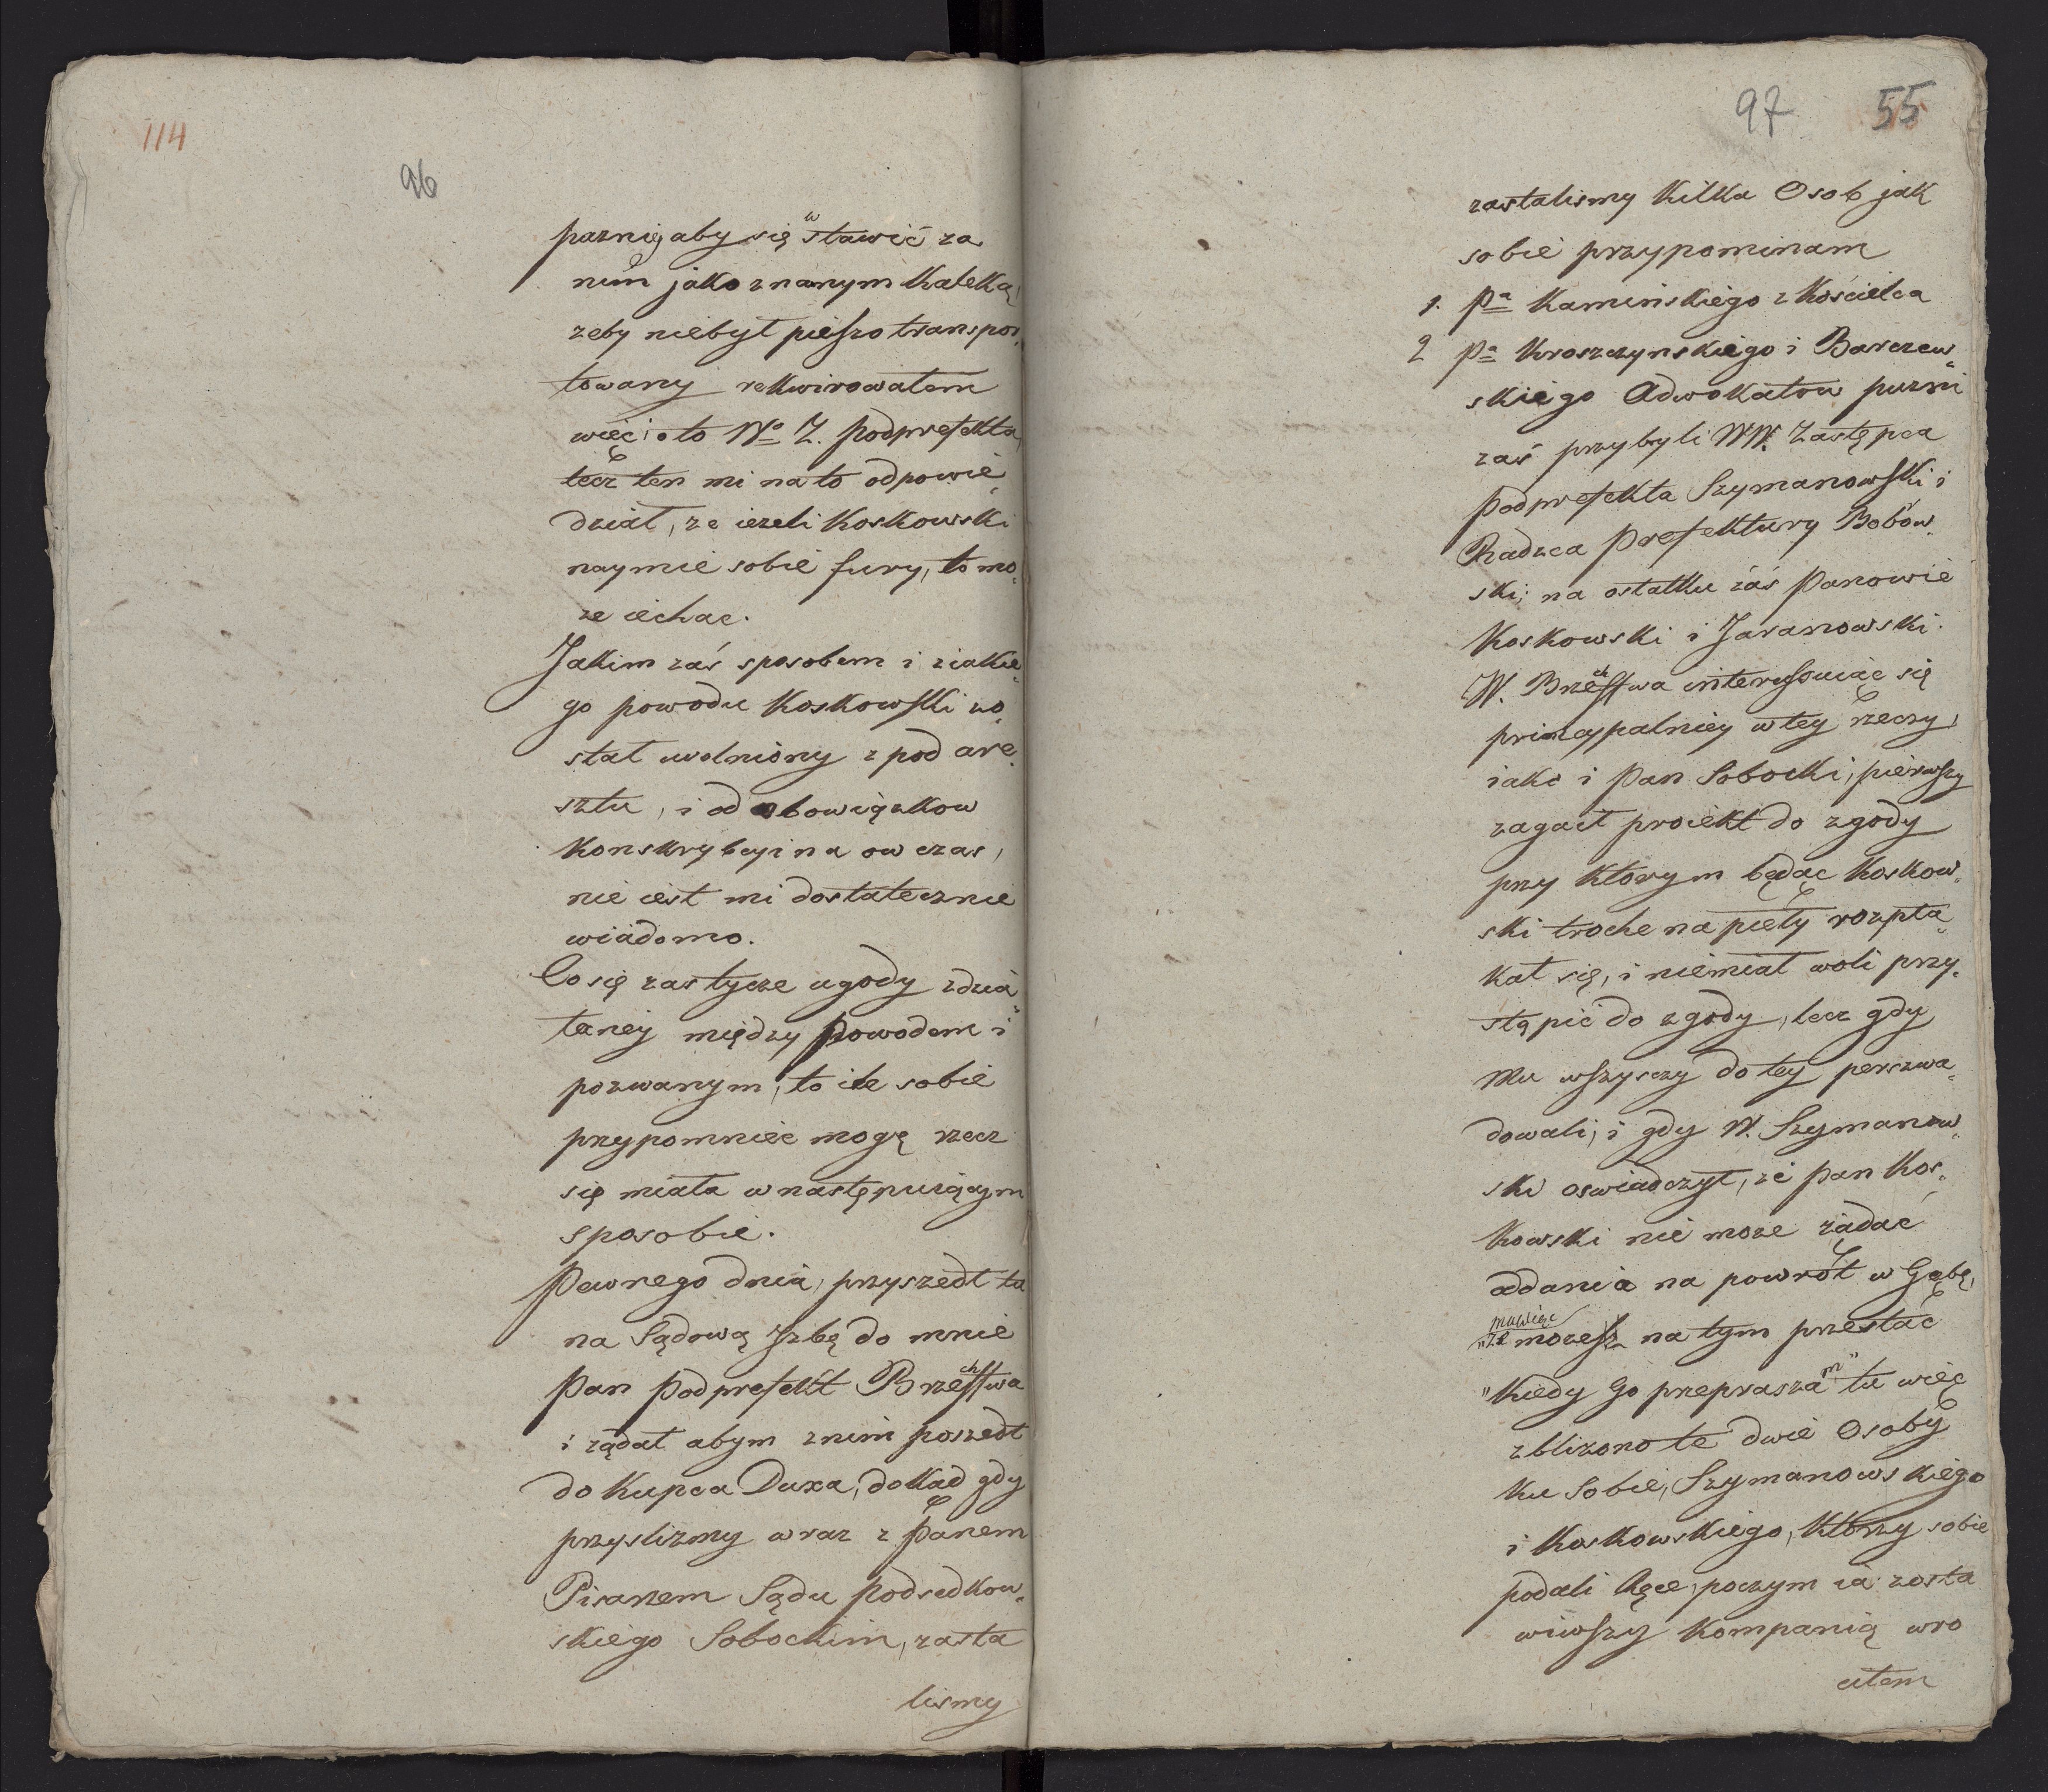 114
96
paznię aby się wstawić za
nim jako znanym kaleką,
zeby niebył pieszo transpor„
towany rekwirowałem
więc o to Wo Z. Podprefekta,
lecz ten mi na to odpowie„
dział, ze iezeli Koskowski
naymie sobie fury, to mo„
ze iechac.
Jakim zaś sposobem i ziakie„
go powodu Koskowski zo„
stał uwolniony z pod are„
sztu, i od obowiązkow
konskrybcyi na ow czas,
nie iest mi dostatecznie
wiadomo.
Co się zas tycze ugody zdzia„
łaney między Powodem i
pozwanym, to ile sobie
przypomniec mogę rzecz
się miała w następuiącym
sposobie.
Pewnego dnia, przyszedł tu
na Sądową Jzbę do mnie
Pan Podprefekt Brzechffwa
i ządał abym znim poszedł
do Kupca Duxa, dokąd gdy
przyslizmy wraz z Panem
Pisarzem Sądu Podsedkow„
skiego Sobockim, zasta
lismy
97 55
zastalismy kilka Osob jak
sobie przypominam
1. Pa Kaminskiego z Kościelca
2 Pa Kroszczynskiego i Barczew„
skiego Adwokatow puzni
zaś przybyli WW. Zastępca
Podprefekta Szymanowski i
Radzca Prefektury Bobow„
ski; na ostatku zaś Panowie
Koskowski i Jaranowski.
W. Brzechffwa interessuiąc się
pryncypalniey w tey rzeczy,
iako i Pan Sobocki, pierwszy
zagaił proiekt do zgody
przy którym będąc Koskow„
ski troche napiety rozpła„
kał się, i niemiał woli przy„
stąpić do zgody, lecz gdy
mu wszyscy do tey perswa„
dowali, i gdy W. Szymanow„
ski oswiadczył, ze Pan Kos„
kowski nie moze ządać
oddania na powrót w Gębę,
mowiąc
„ze mozesz na tym przestać
„kiedy Go preprаszam" tu więc
zblizono te dwie Osoby
ku Sobie, Szymanowskiego
i Koskowskiego, którzy sobie
podali Ręce, poczym ia zosta
wiwszy kompanią wro
ciłem